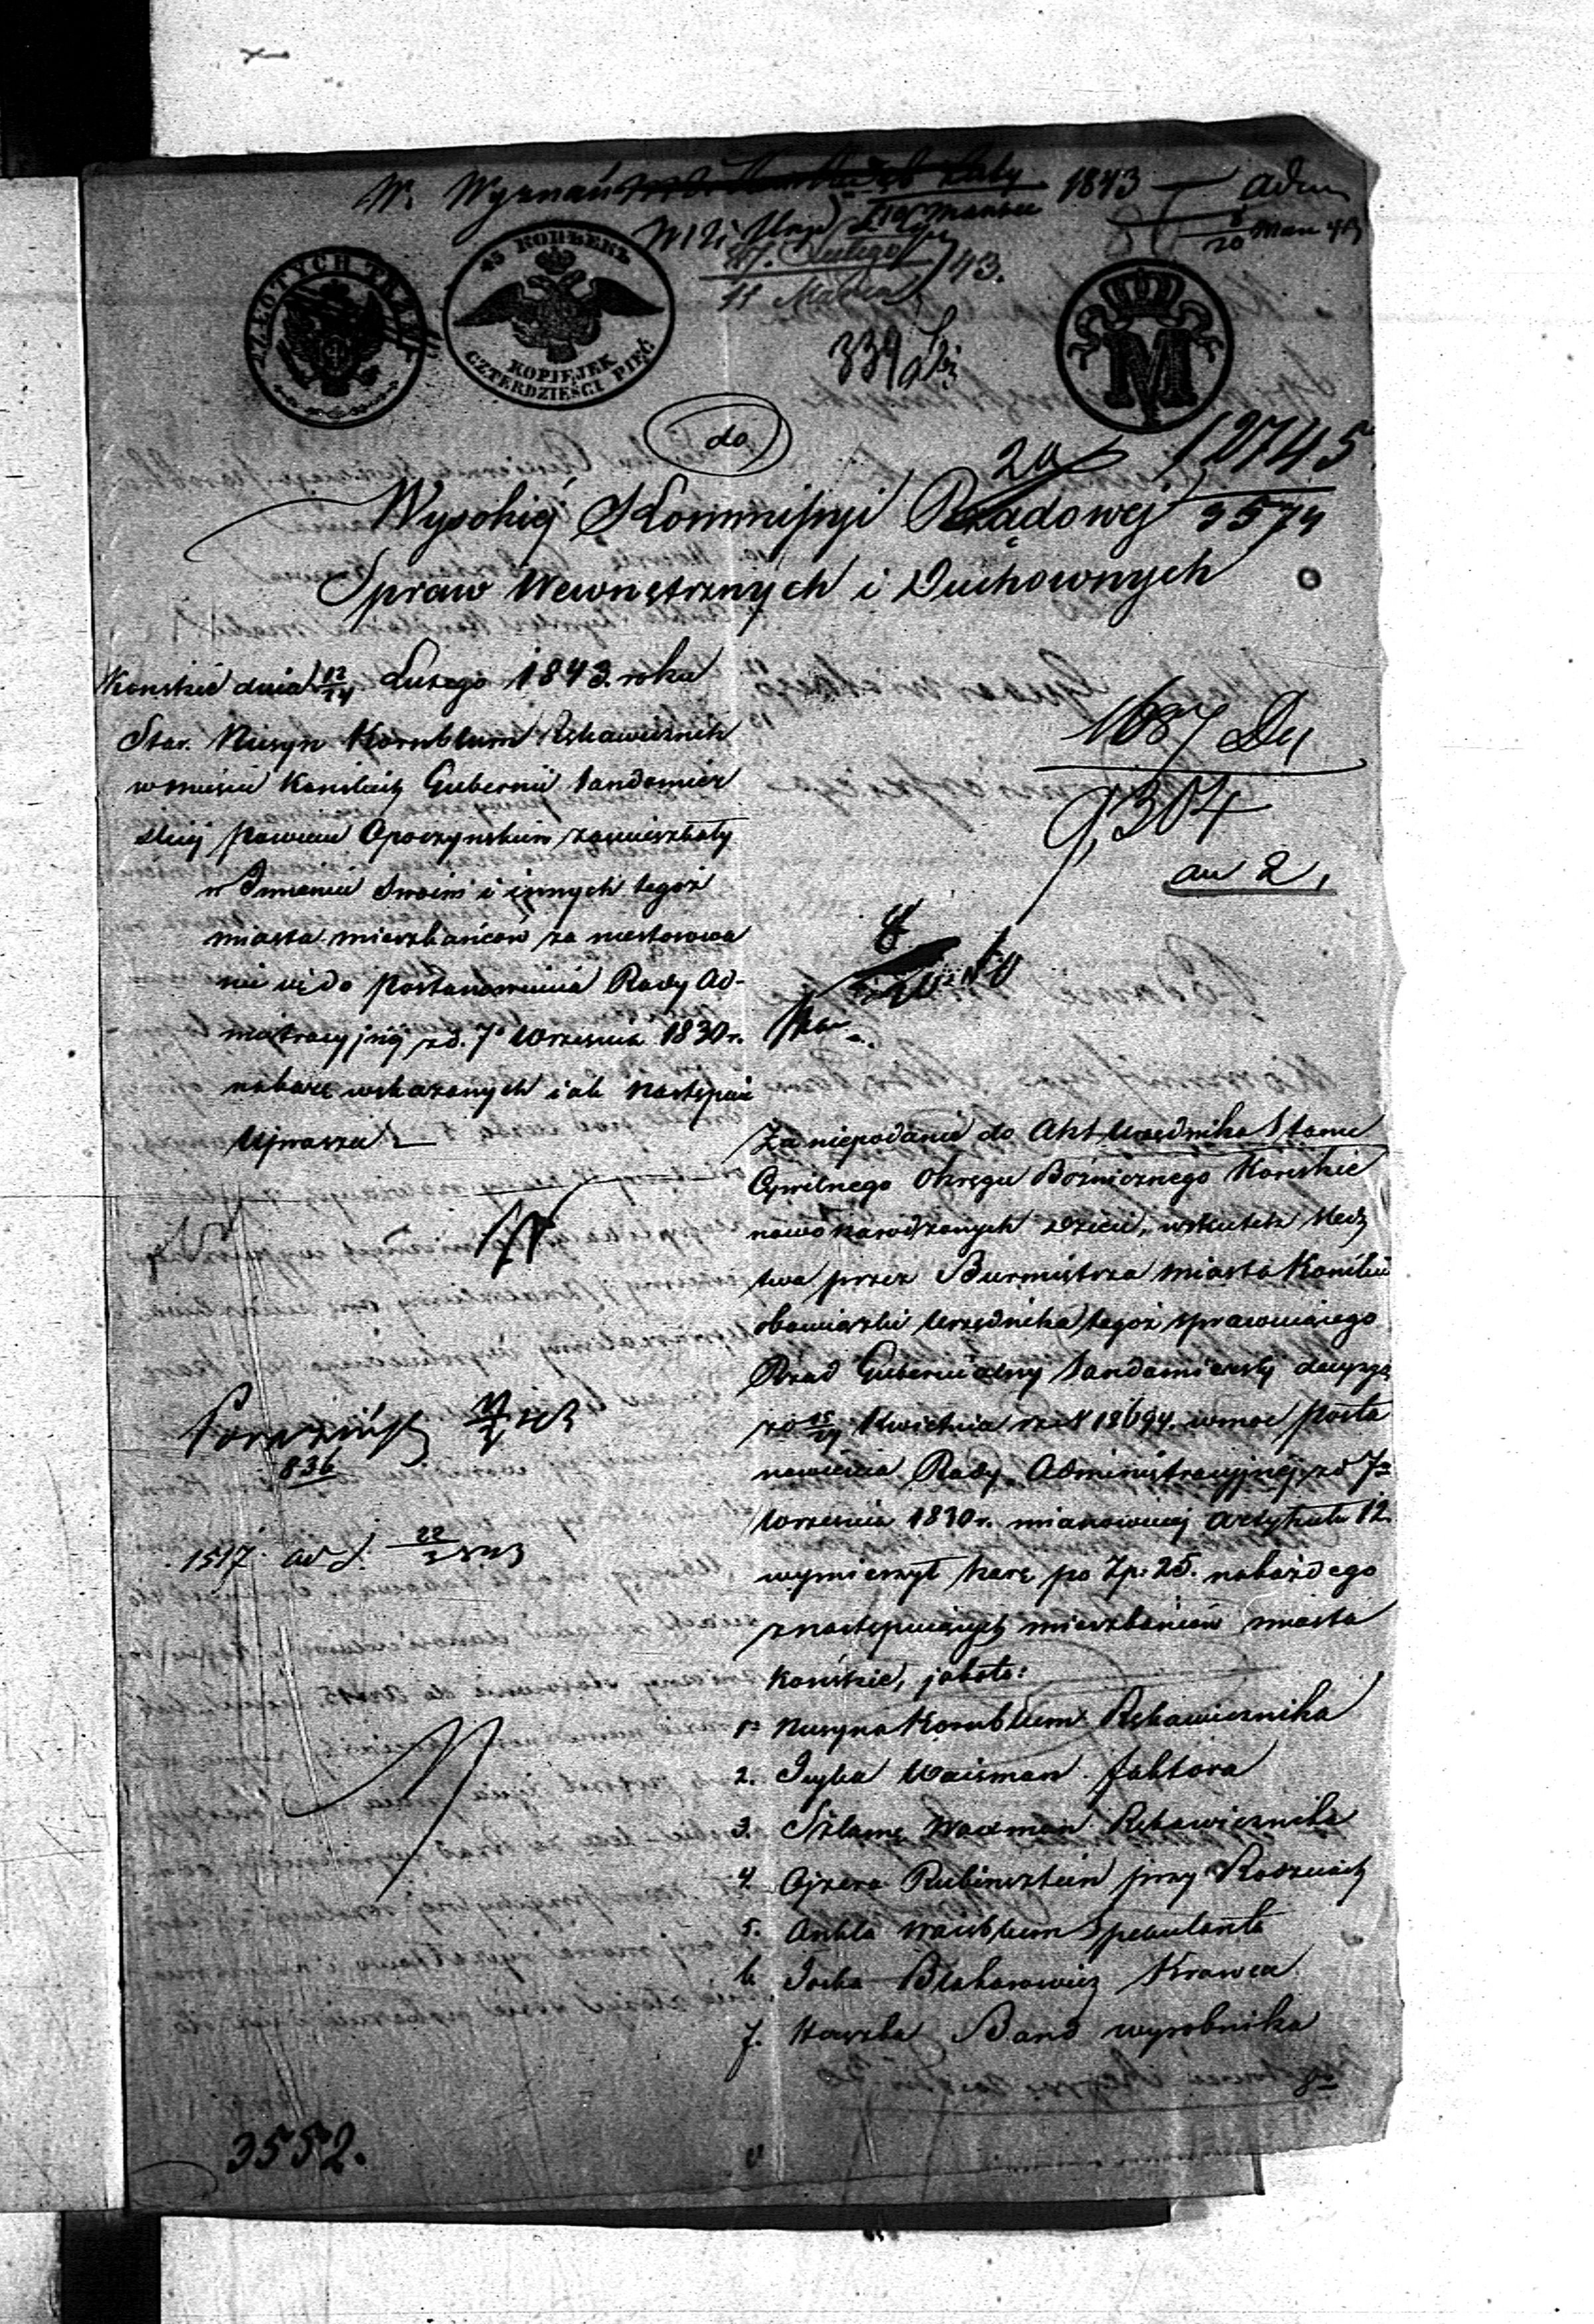 W. Wyznań 1843
17. Lutego
11 Marca 43.
ZŁOTYCH TRZY
45 KOPIEEKЪ
KOPIEJEK
CZTERDZIEŚCI PIĘĆ
M
339
do
20
12745
3574
Wysokiéj Kommissyi Rządowej
Spraw Wewnętrznych i Duchownych
Końskie dnia 12/24 Lutego 1843. roku
Star. Nusyn Kornblum Rękawicznik
w mieście Końskich Gubernii Sandomier
skiéj powiecie Opoczyńskim zamieszkały
w Imieniu Swoim i innych tegoż
miasta mieszkańców za niestosowa
nie się do postanowienia Rady Ad-
ministracyjnéj z d. 7º Września 1830 r.
na karę wskazanych iak następuie
uprasza
1687
9,304
ad 2,
Za niepodanie do Akt Urzędnika Stanu
Cywilnego Okręgu Bożniczego Końskie
nowo narodzonych dzieci, wskutek śledz
twa przez Burmistrza miasta Końskie
obowiązki Urzędnika tegoż sprawuiącego
Rząd Gubernialny Sandomierski decyzyą
z d 15/27 Kwietnia r. z. N 18694. w moc posta
nowienia Rady Administracyjnéj z d 7º
Września 1830 r. mianowiciej Artykułu 12.
wymierzył karę po Zp: 25. na każdego
z następuiących mieszkańców miasta
Końskie, jakoto:
1º Nusyna Kornblum Rękawicznika
2. Icyka Waisman faktora
3. Szlamę Waxman Rękawicznika
4. Ajzera Rubinsztein przy Rodzicach
5. Ankla Spekulanta
6. Joska Krawca
7. Hercyka Band wyrobnika
836
1517 ad 22/3 843
3552.